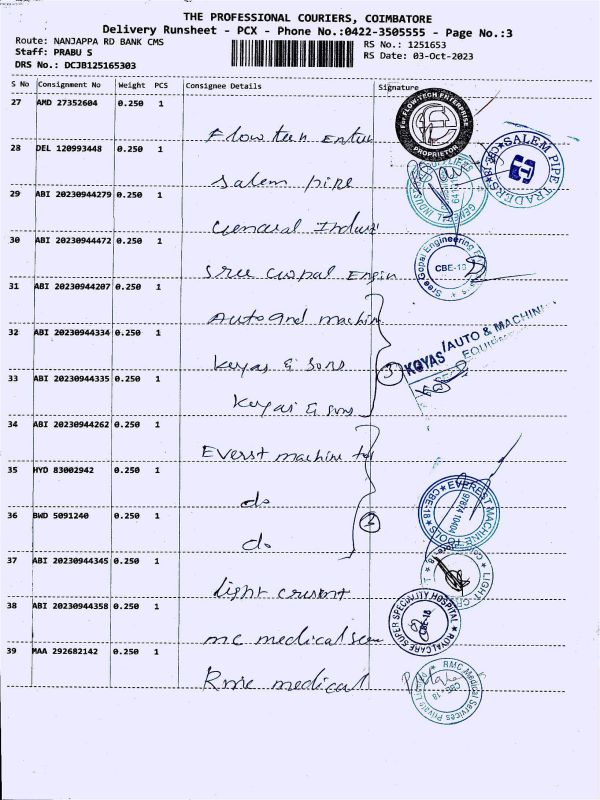 THE PROFESSIONAL COURIERS, COIMBATORE
Delivery Runsheet - PCX - Phone No.:0422-3505555 - Page No.:3
Route: NANJAPPA RD BANK CMS
RS No.: 1251653
Staff: PRABU S
RS Date: 03-Oct-2023
DRS No.: DCJB125165303
S No Consignment No Weight PCS Consignee Details Signature
27 AMD 27352604 0.250 1
Flow tech Enter
For FLOW-TECH ENTERPRISE
PROPRIETOR
28 DEL 120993448 0.250 1
Salem pipe
SALEM PIPE TRADERS CBE-18
29 ABI 20230944279 0.250 1
General Indust
30 ABI 20230944472 0.250 1
Sree Gopal Engin
Sree Gopal Engineering
CBE-18
31 ABI 20230944207 0.250 1
Auto and machin
32 ABI 20230944334 0.250 1
Koyas & Sons
3
KOYAS AUTO & MACHIN
33 ABI 20230944335 0.250 1
Koyas & sons
34 ABI 20230944262 0.250 1
Everst machine tol
35 HYD 83002942 0.250 1
do
EVEREST MACHINE TOOLS CBE-18
97874 10404
36 BWD 5091240 0.250 1
do
2
37 ABI 20230944345 0.250 1
light
LIGHT
38 ABI 20230944358 0.250 1
mc medical
ROYAL CARE SUPER SPECIALITY HOSPITAL
CBE-18
39 MAA 292682142 0.250 1
Rmc medical
RMC Medical Services Private Limited
CBE-18